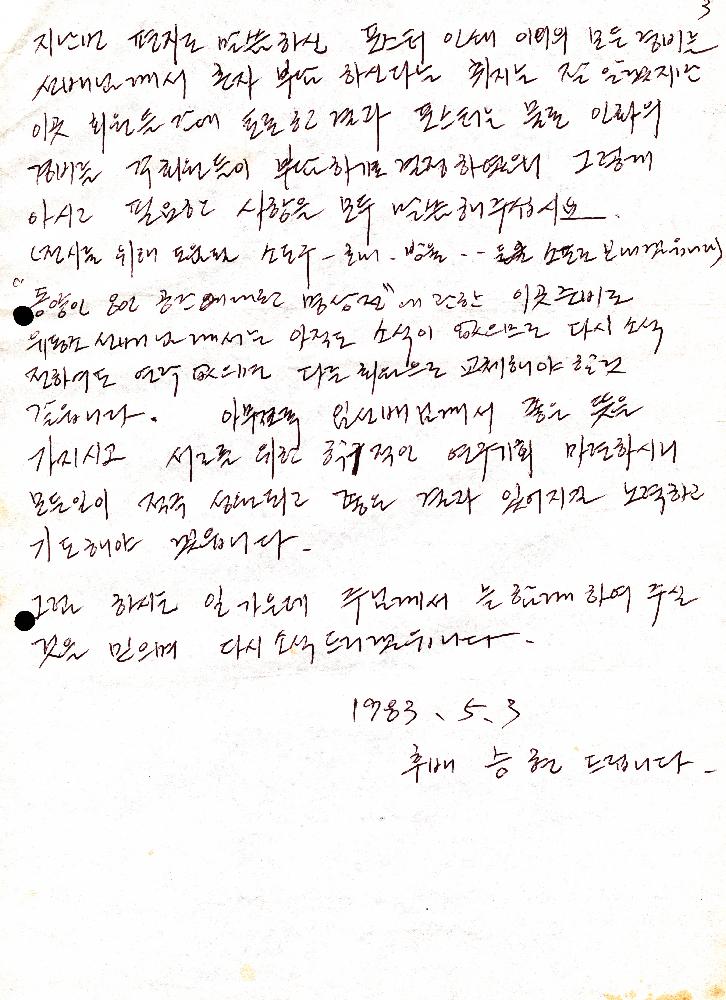 3
지난번 편지로 말씀하신 포스터 인쇄 이외의 모든 경비는
선배님께서 혼자 부담 하신다는 취지는 잘 알겠지만
이곳 회원들 간에 토론한 결과 포스터는 물론 인화의
경비를 각 회원들이 부담하기로 결정하였으니 그렇게
아시고 필요한 사항은 모두 말씀해주십시요.
(전시를 위해 소도구 소포로 보내겠습니다)
"동양인 8인 공간 명상전"에 관한 이곳 준비로
선배님께서는 아직도 소식이 없으므로 다시 소식
전하여도 연락 없으면 다른 회원으로 교체해야 할것
같읍니다. 아무쪼록 임선배님께서 좋은 뜻을
가지시고 서로를 위한 적인 연구기회 마련하시니
모든일이 적극 좋은 결과 있어지길 노력하고
기도해야 겠읍니다.
그럼 하시는 일 가운데 주님께서 늘 함께 하여 주실
것을 믿으며 다시 소식 드리겠읍니다.
1983. 5. 3
후배 승현 드립니다.